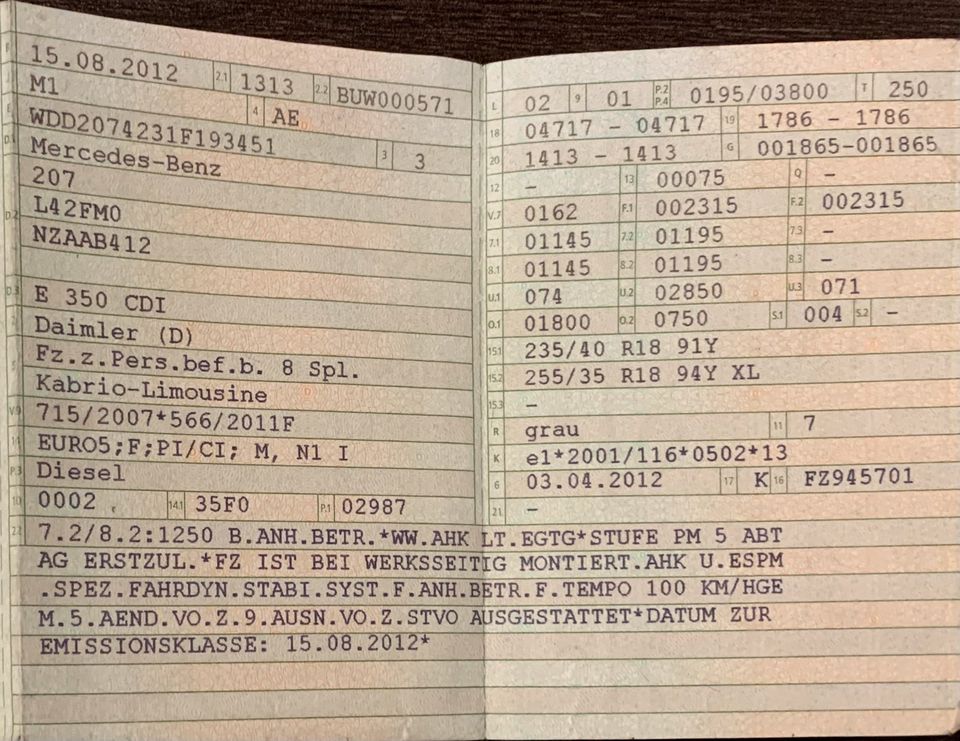 B 15.08.2012 2.1 1313 2.2 BUW000571
J M1 4 AE
E WDD2074231F193451 3 3
D.1 Mercedes-Benz
207
D.2 L42FM0
NZAAB412
D.3 E 350 CDI
2 Daimler (D)
5 Fz.z.Pers.bef.b. 8 Spl.
Kabrio-Limousine
V.9 715/2007*566/2011F
14 EURO5;F;PI/CI; M, N1 I
P.3 Diesel
10 0002 14.1 35F0 P.1 02987
L 02 9 01 P.2 P.4 0195/03800 T 250
18 04717 - 04717 19 1786 - 1786
20 1413 - 1413 G 001865-001865
12 - 13 00075 Q -
V.7 0162 F.1 002315 F.2 002315
7.1 01145 7.2 01195 7.3 -
8.1 01145 8.2 01195 8.3 -
U.1 074 U.2 02850 U.3 071
O.1 01800 O.2 0750 S.1 004 S.2 -
15.1 235/40 R18 91Y
15.2 255/35 R18 94Y XL
15.3 -
R grau 11 7
K e1*2001/116*0502*13
6 03.04.2012 17 K 16 FZ945701
21 -
22 7.2/8.2:1250 B.ANH.BETR.*WW.AHK LT.EGTG*STUFE PM 5 ABT
AG ERSTZUL.*FZ IST BEI WERKSSEITIG MONTIERT.AHK U.ESPM
.SPEZ.FAHRDYN.STABI.SYST.F.ANH.BETR.F.TEMPO 100 KM/HGE
M.5.AEND.VO.Z.9.AUSN.VO.Z.STVO AUSGESTATTET*DATUM ZUR
EMISSIONSKLASSE: 15.08.2012*